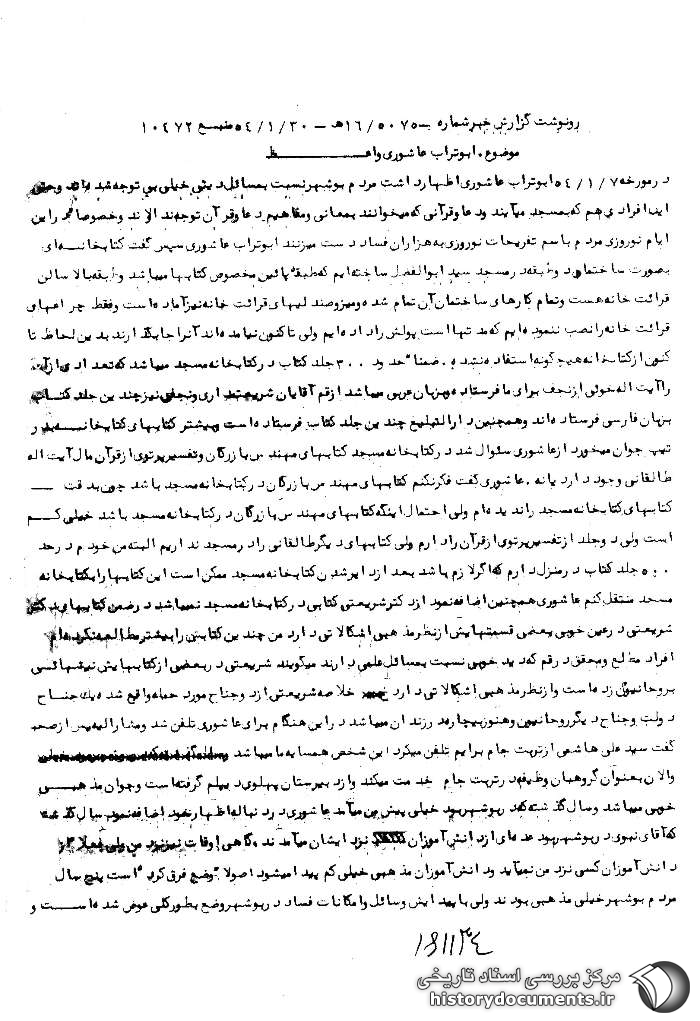 رونوشت گزارش خبر شماره ۵۰۷۵/۱۶هـ - ۵۴/۱/۳۰ منبع ۱۰۴۷۲
موضوع: ابوتراب عاشوری واعظ
در مورخه ۵۴/۱/۷ ابوتراب عاشوری اظهار داشت مردم بوشهر نسبت بمسائل دینی خیلی بی توجه شده اند و حتی
این افرادی هم که بمسجد میآیند و دعا و قرآنی که میخوانند بمعانی و مفاهیم دعا و قرآن توجه ندارند و خصوصا در این
ایام نوروزی مردم باسم تفریحات نوروزی به هزاران فساد دست میزنند ابوتراب عاشوری سپس گفت کتابخانه ای
بصورت ساختمانی دو طبقه در مسجد سید ابوالفضل ساخته ایم که طبقه پائین مخصوص کتابها میباشد و طبقه بالا سالن
قرائت خانه هست و تمام کارهای ساختمان آن تمام شده و میز و صندلیهای قرائت خانه نیز آماده است و فقط چراغهای
قرائت خانه را نصب ننموده ایم که مدتها است پولش را داده ایم ولی تاکنون نیامده اند آنرا جایگذارند بدین لحاظ تا
کنون از کتابخانه هیچگونه استفاده نشده. ضمنا حدود ۳۰۰ جلد کتاب در کتابخانه مسجد میباشد که تعدادی از آنها
را آیت اله خوئی از نجف برای ما فرستاده و بزبان عربی میباشد از قم آقایان شریعتمداری و نیز چندین جلد کتاب
بزبان فارسی فرستاده اند و همچنین دارالتبلیغ چندین جلد کتاب فرستاده است و بیشتر کتابهای کتابخانه بدرد
تیپ جوان میخورد از عاشوری سئوال شد در کتابخانه مسجد کتابهای مهندس بازرگان و تفسیر پرتوی از قرآن مال آیت اله
طالقانی وجود دارد یا نه. عاشوری گفت فکر نکنم کتابهای مهندس بازرگان در کتابخانه مسجد باشد چون بدقت
کتابهای کتابخانه مسجد را ندیده ام ولی احتمال اینکه کتابهای مهندس بازرگان در کتابخانه مسجد باشد خیلی کم
است ولی دو جلد از تفسیر پرتوی از قرآن را دارم ولی کتابهای دیگر طالقانی را در مسجد نداریم البته من خودم در حدود
۵۰۰ جلد کتاب در منزل دارم که اگر لازم باشد بعد از دایر شدن کتابخانه مسجد ممکن است این کتابها را بکتابخانه
مسجد منتقل کنم عاشوری همچنین اضافه نمود از دکتر شریعتی کتابی در کتابخانه مسجد نمیباشد در ضمن کتابهای دکتر
شریعتی در عین خوبی بعضی قسمتهایش از نظر مذهبی اشکالاتی دارد من چندین کتابش را بیشتر مطالعه نکرده ام
افراد مطلع و محقق در قم که دید خوبی نسبت بمسائل علمی دارند میگویند شریعتی در بعضی از کتابهایش نیشهائی
بروحانیون زده است و از نظر مذهبی اشکالاتی دارد خلاصه شریعتی از دو جناح مورد حمله واقع شده یک جناح
دولت و جناح دیگر روحانیون و هنوز بیچاره در زندان میباشد در این هنگام برای عاشوری تلفن شد و مشارالیه پس از صحبت
گفت سید علی هاشمی از تربت جام برایم تلفن میکرد این شخص همسایه ما میباشد
والان بعنوان گروهبان وظیفه در تربت جام خدمت میکند و از دبیرستان پهلوی دیپلم گرفته است و جوان مذهبی
خوبی میباشد و سال گذشته که در بوشهر بود خیلی پیش من میآمد عاشوری در دنباله اظهار خود اضافه نمود سال گذشته
که آقای نبوی در بوشهر بود عده ای از دانش آموزان نزد ایشان میآمدند و گاهی اوقات نیز نزد من ولی فعلا از
دانش آموزان کسی نزد من نمیآید و دانش آموزان مذهبی خیلی کم پیدا میشود اصولا وضع فرق کرده است پنج سال
مردم بوشهر خیلی مذهبی بودند ولی با پیدایش وسائل و امکانات فساد در بوشهر وضع بطور کلی عوض شده است و
مرکز بررسی اسناد تاریخی
historydocuments.ir